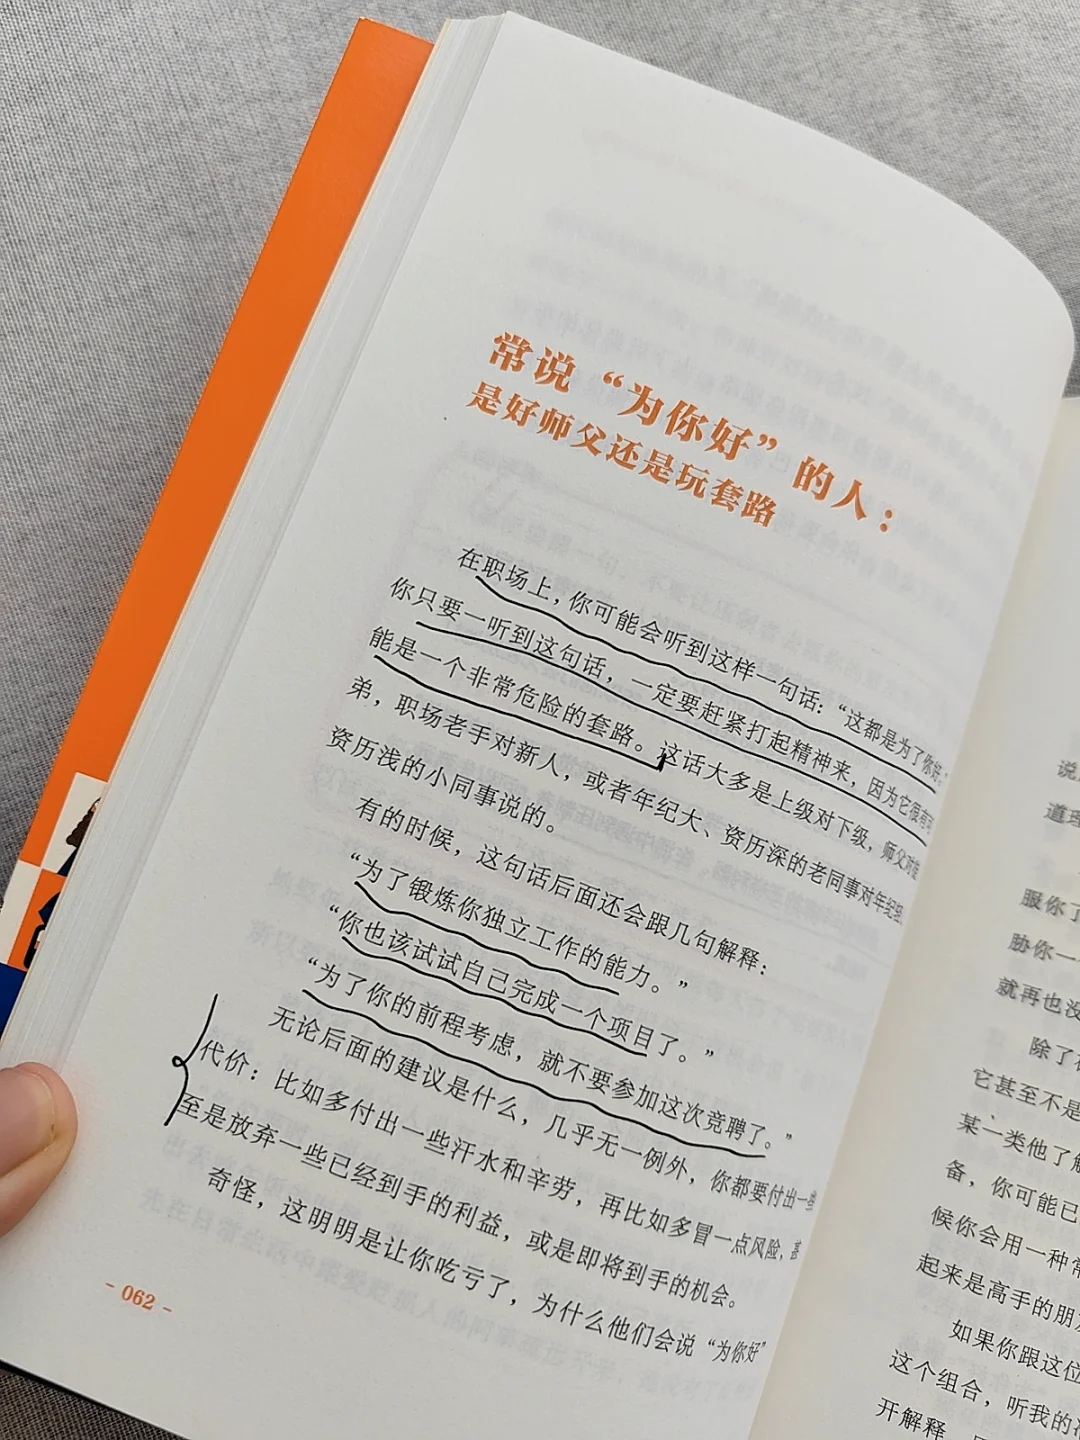 常说“为你好”的人：
是好师父还是玩套路
在职场上，你可能会听到这样一句话：“这都是为了你好。”
你只要一听到这句话，一定要赶紧打起精神来，因为它很有可
能是一个非常危险的套路。这话大多是上级对下级，师父对徒
弟，职场老手对新人，或者年纪大、资历深的老同事对年纪轻、
资历浅的小同事说的。
有的时候，这句话后面还会跟几句解释：
“为了锻炼你独立工作的能力。”
“你也该试试自己完成一个项目了。”
“为了你的前程考虑，就不要参加这次竞聘了。”
无论后面的建议是什么，几乎无一例外，你都要付出一些
代价：比如多付出一些汗水和辛劳，再比如多冒一点风险，甚
至是放弃一些已经到手的利益，或是即将到手的机会。
奇怪，这明明是让你吃亏了，为什么他们会说“为你好”
- 062 -
说
道理
服你了
胁你一
就再也没
除了在
它甚至不是
某一类他了解
备，你可能已
候你会用一种常
起来是高手的朋友
如果你跟这位
这个组合，听我的准
开解释